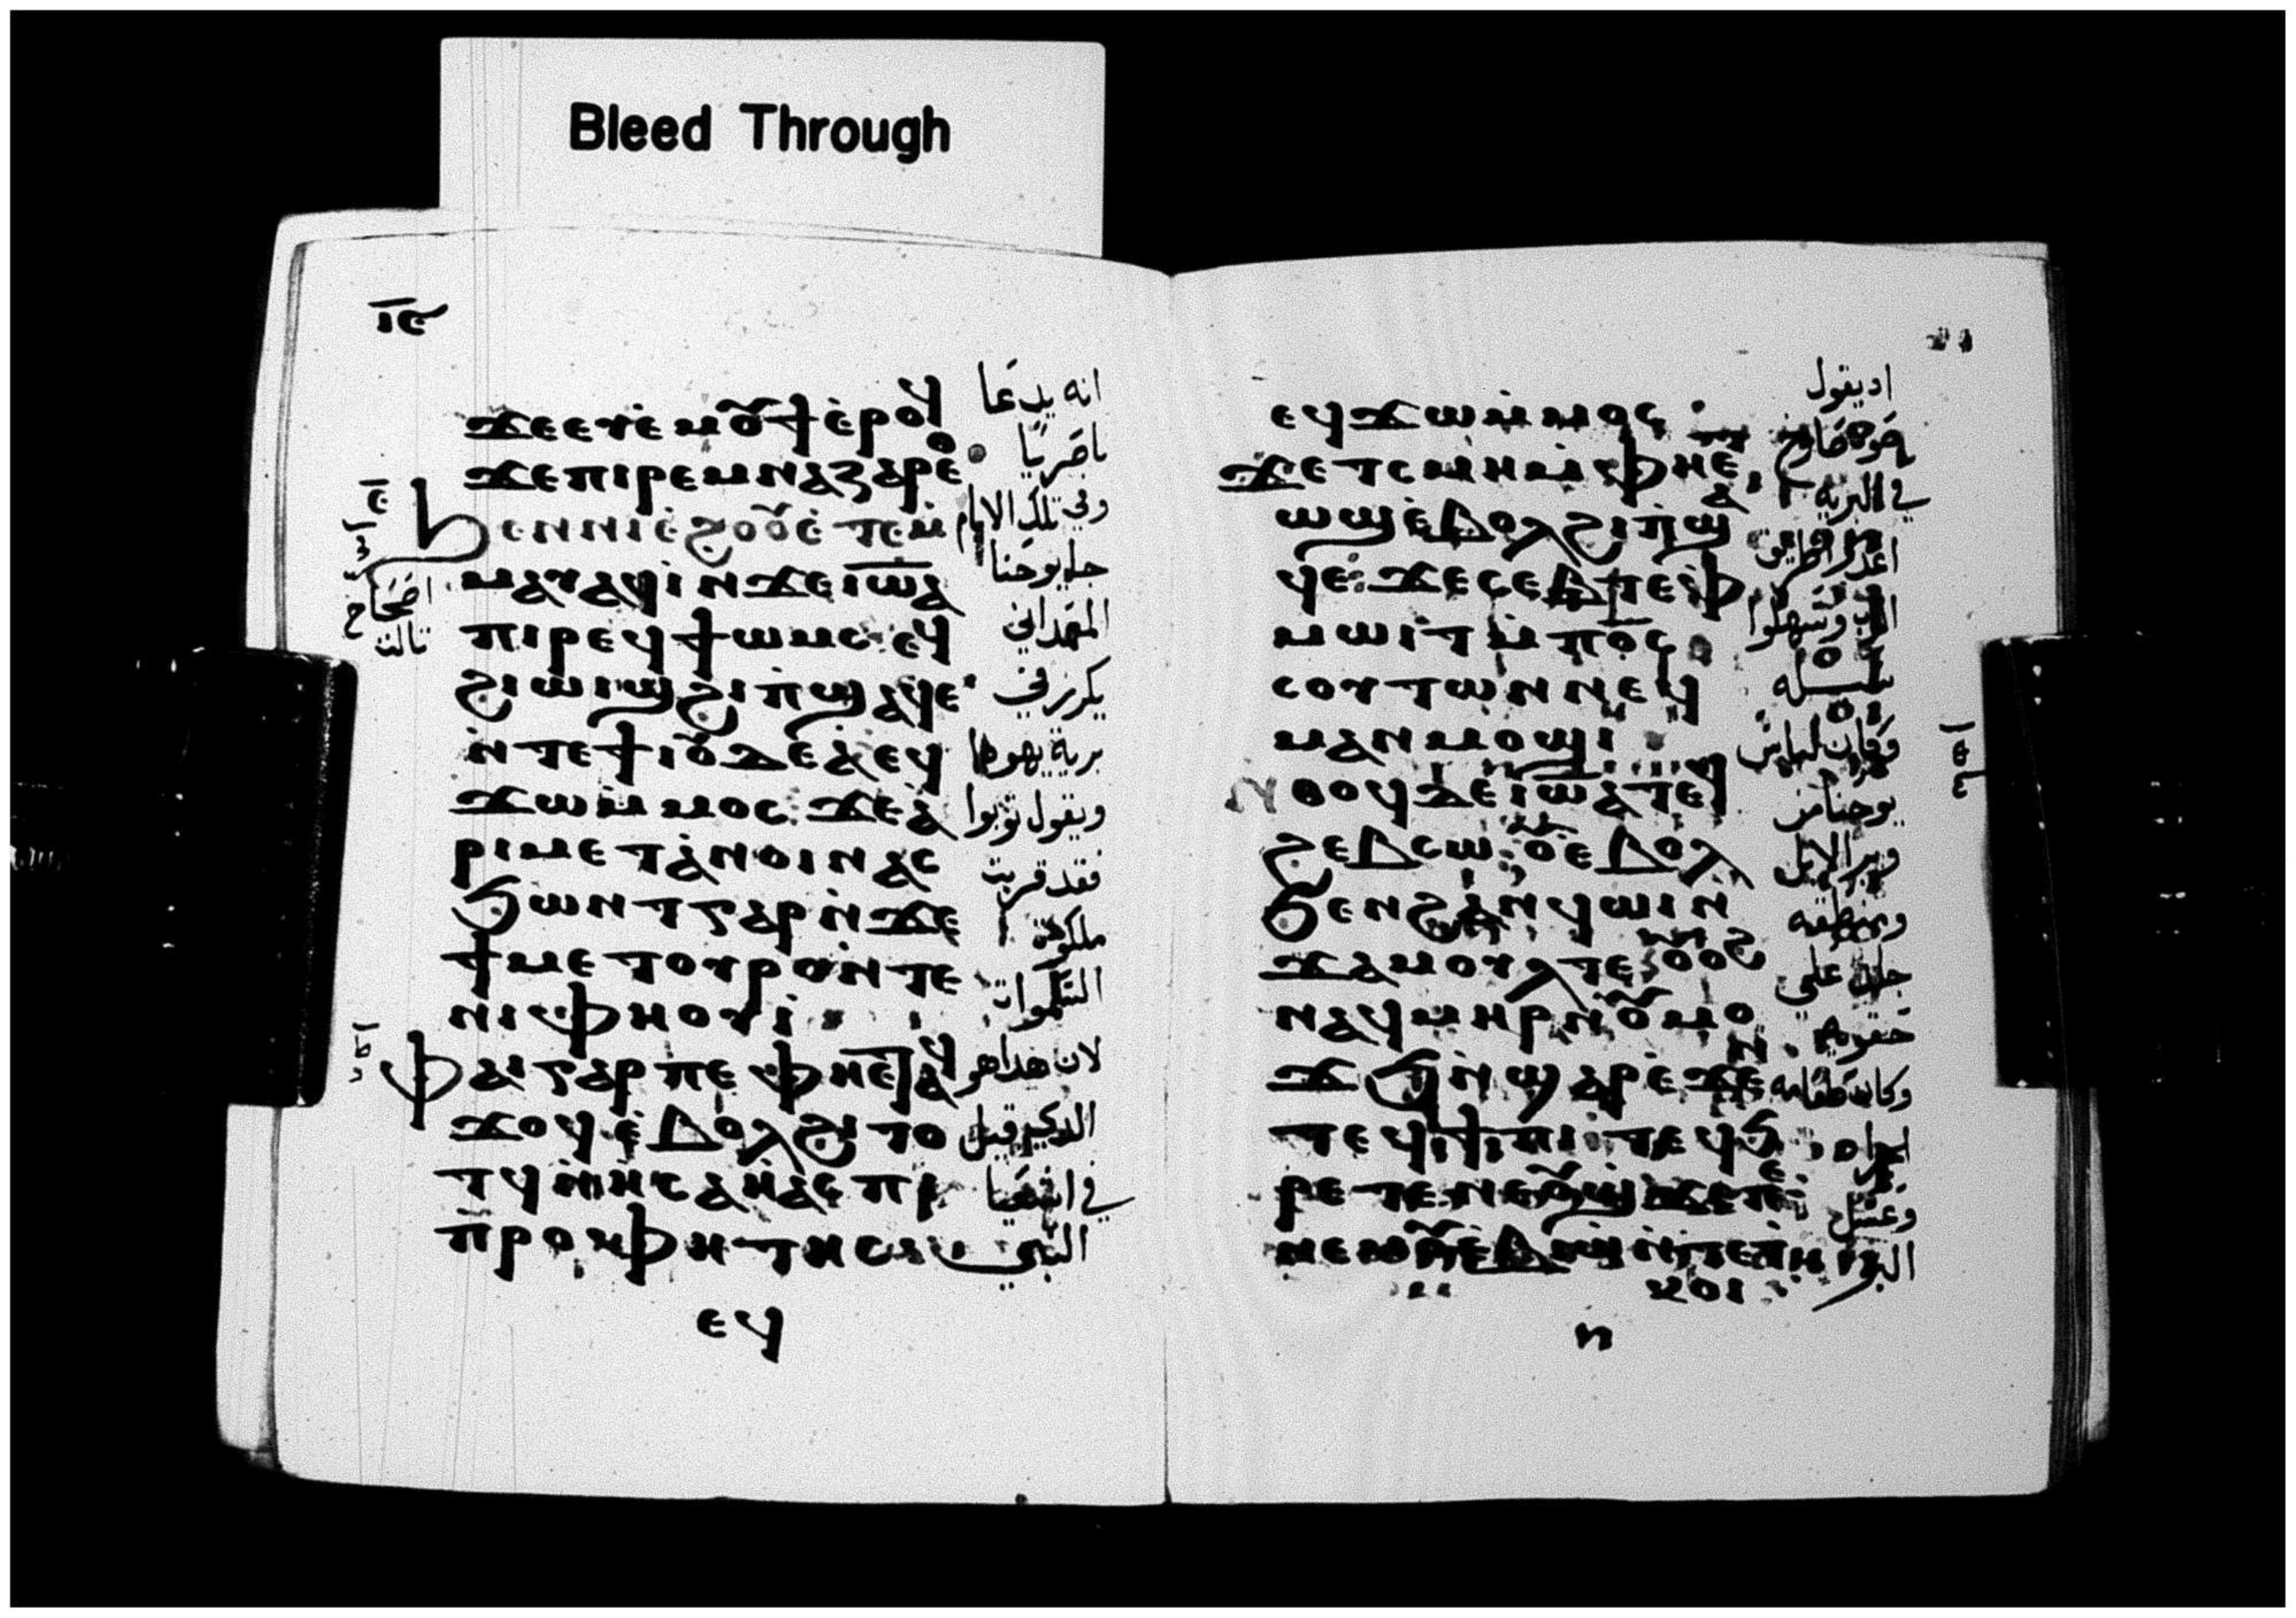 Bleed Through
ⲓⲉ
ϫⲉⲉⲩⲉ̀ⲙⲟⲩϯⲉ̀ⲣⲟϥ
ϫⲉⲡⲓⲣⲉⲙⲛⲁⲍⲁⲣⲉⲑ
ϧⲉⲛⲛⲓⲉ̀ϩⲟⲟⲩⲉ̀ⲧⲉⲙ̀
ⲙⲁⲩⲁϥⲓ̀ⲛϫⲉⲓⲱⲁ
ⲡⲓⲣⲉϥϯⲱⲙⲥ ⲉϥ
ϩⲓⲱⲓϣϩⲓⲡ̀ϣⲁϥⲉ
ⲛ̀ⲧⲉϯⲓⲟⲩⲇⲉⲁ̀ ⲉϥ
ϫⲱⲙ̀ⲙⲟⲥ ϫⲉⲁ
ⲣⲓⲙⲉⲧⲁ̀ⲛⲟⲓⲛⲁⲥ
ϭⲱⲛⲧⲅⲁⲣⲛ̀ϫⲉ
ϯⲙⲉⲧⲟⲩⲣⲟⲛ̀ⲧⲉ
ⲛⲓⲫⲏⲟⲩⲓ̀
ⲫⲁⲓⲅⲁⲣⲡⲉ ⲫⲏⲉⲧⲁϥ
ϫⲟϥⲉ̀ⲃⲟⲗϩⲓⲧⲟ
ⲧϥⲛ̀ⲏ̀ⲥⲁⲏ̀ⲁⲥ ⲡⲓ
ⲡ̀ⲣⲟⲫⲏⲧⲏⲥ
ⲉϥ
انه يدعا
ناصريا
وفي تلك الايام
جا يوحنا
المعمداني
يكرز في
برية يهودا
ويقول توبوا
فقد قربت
ملكوت
السموات
لان هذا هو
الذي قيل
في اشعيا
النبي
اصحاح
ثالث
ⲉϥϫⲱⲙ̀ⲙⲟⲥ
ϫⲉⲧⲥⲙⲏⲙ̀ⲫⲏⲉⲧ
ⲱϣⲉ̀ⲃⲟⲗϩⲓⲡ̀ϣⲁ
ϥⲉ ϫⲉⲥⲉⲃⲧⲉⲫ
ⲙⲱⲓⲧⲙ̀ⲡⲟⲥ
ⲥⲟⲩⲧⲱⲛⲛⲉϥ
ⲙⲁⲛⲙⲟϣⲓ
ⲛⲑⲟϥⲇⲉⲓⲱⲁⲧⲉϥ
ϩⲉⲃⲥⲱ ⲟⲩⲉⲃⲟⲗ
ϧⲉⲛϩⲁⲛϥⲱⲓⲛ̀
ϫⲁⲙⲟⲩⲗⲧⲉ ⲟⲩⲟϩ
ⲛⲁϥⲙⲏⲣⲛ̀ⲟⲩⲙⲟ
اذ يقول
صوت صارخ
في البرية
اعدوا طريق
الرب وسهلوا
سبله
وكان لباس
يوحنا من
وبر الابل
ومنطقه
جلد علي
حقويه
وكان طعامه
وعسل
البر